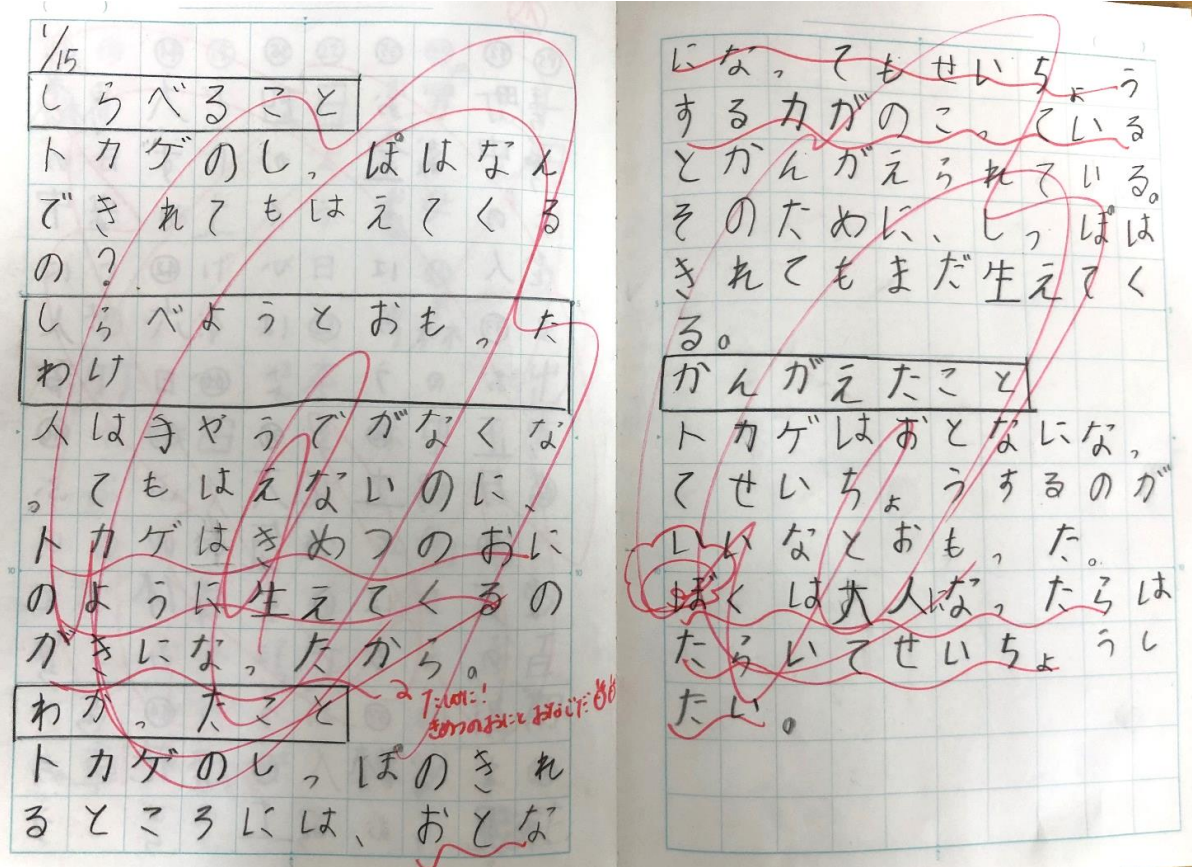 1/15
しらべること
トカゲのしっぽはなん
できれてもはえてくる
の？
しらべようとおもった
わけ
人は手やうでがなくな
ってもはえないのに、
トカゲはきめつのおに
のように生えてくるの
がきになったから。
たしかに！
きめつのおにとおなじだ
わかったこと
トカゲのしっぽのきれ
るところには、おとな
になってもせいちょう
する力がのこっている
とかんがえられている。
そのために、しっぽは
きれてもまだ生えてく
る。
かんがえたこと
トカゲはおとなになっ
てせいちょうするのが
いいなとおもった。
ぼくは大人になったらは
たらいてせいちょうし
たい。